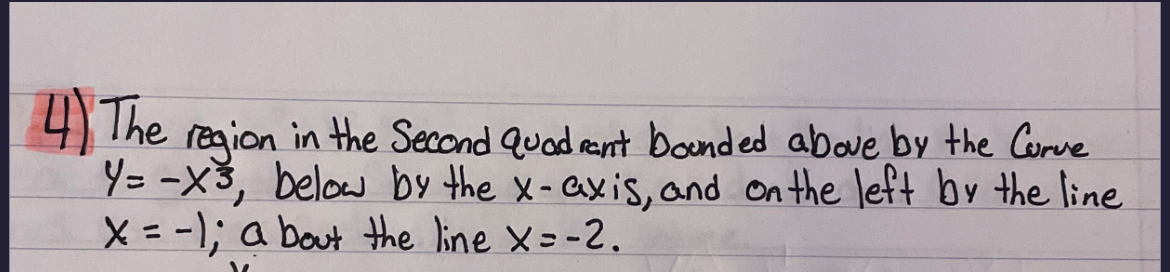 4) The region in the Second Quadrant bounded above by the Curve
y = -x³, below by the x-axis, and on the left by the line
x = -1; about the line x = -2.